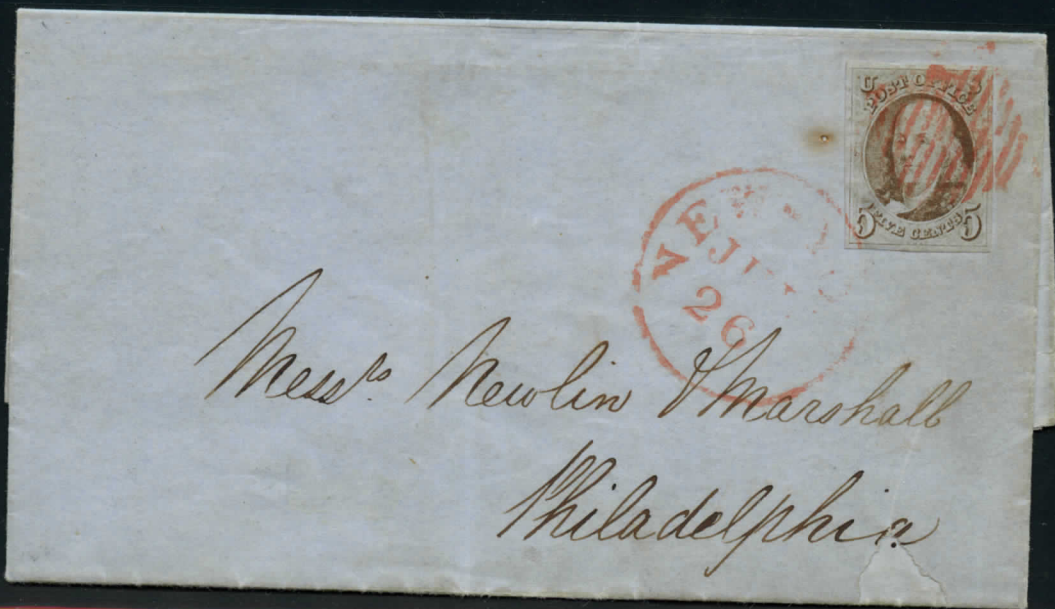 U S
POST OFFICE
5 FIVE CENTS 5
26
Mess.rs Newlin & Marshall
Philadelphia